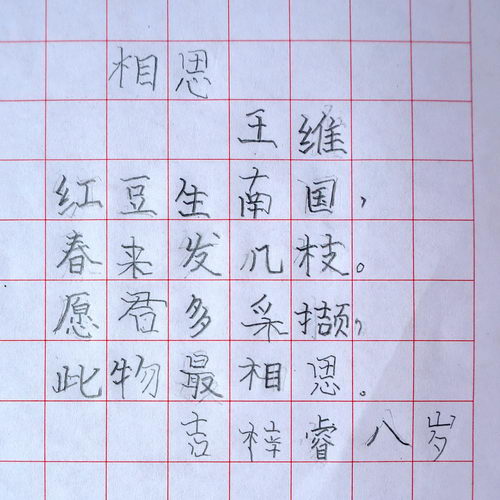 相思
王维
红豆生南国，
春来发几枝。
愿君多采撷，
此物最相思。
吉梓睿八岁